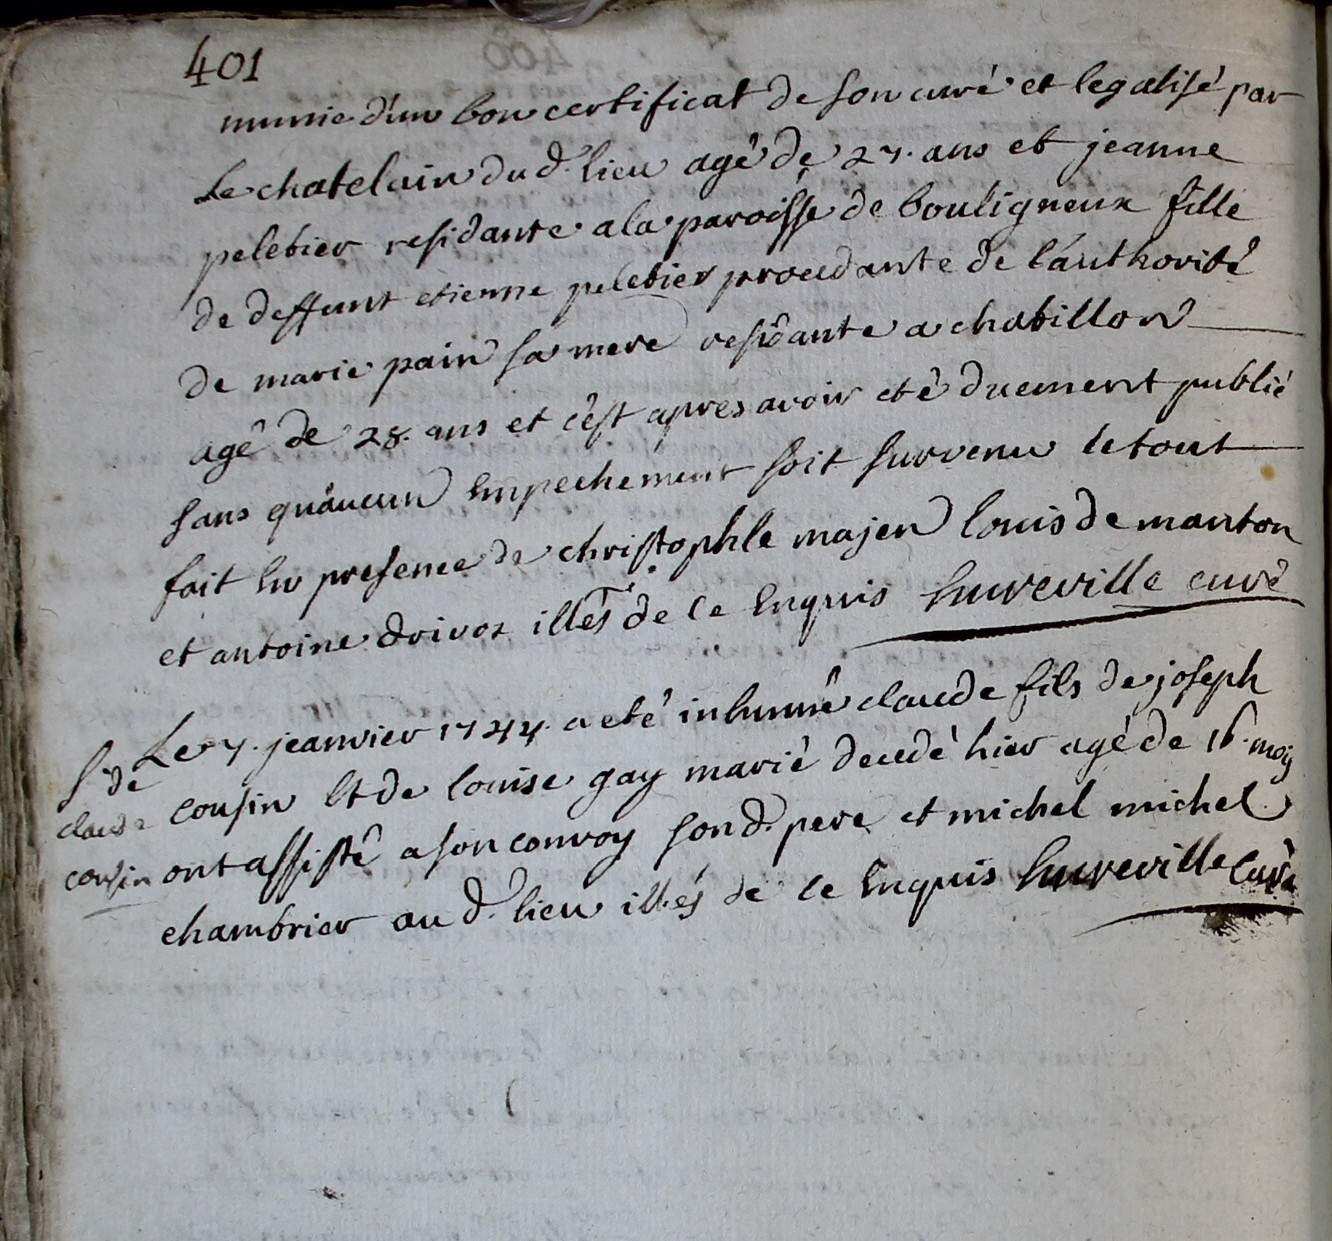 401
munie d'un bon certificat de son curé et legalisé par
Le chatelain du d. lieu agé de 27. ans et jeanne
peletier residante a la paroisse de bouligneux fille
de deffunt etienne peletier procedante de l'authorité
de marie pain sa mere residante a chatillon
agé de 28. ans et c'est apres avoir eté duement publié
sans qu'aucun empechement soit survenu le tout
fait en presence de christophle majen louis de manton
et antoine drivoz illes de ce enquis hureville curé
Le 7. jeanvier 1744. a eté inhumé claude fils de joseph
S. de
claude
cousin
cousin et de louise gay marié decedé hier agé de 16. moy
ont assisté a son convoy son d. pere et michel michel
chambrier au d. lieu illés de ce enquis hureville curé